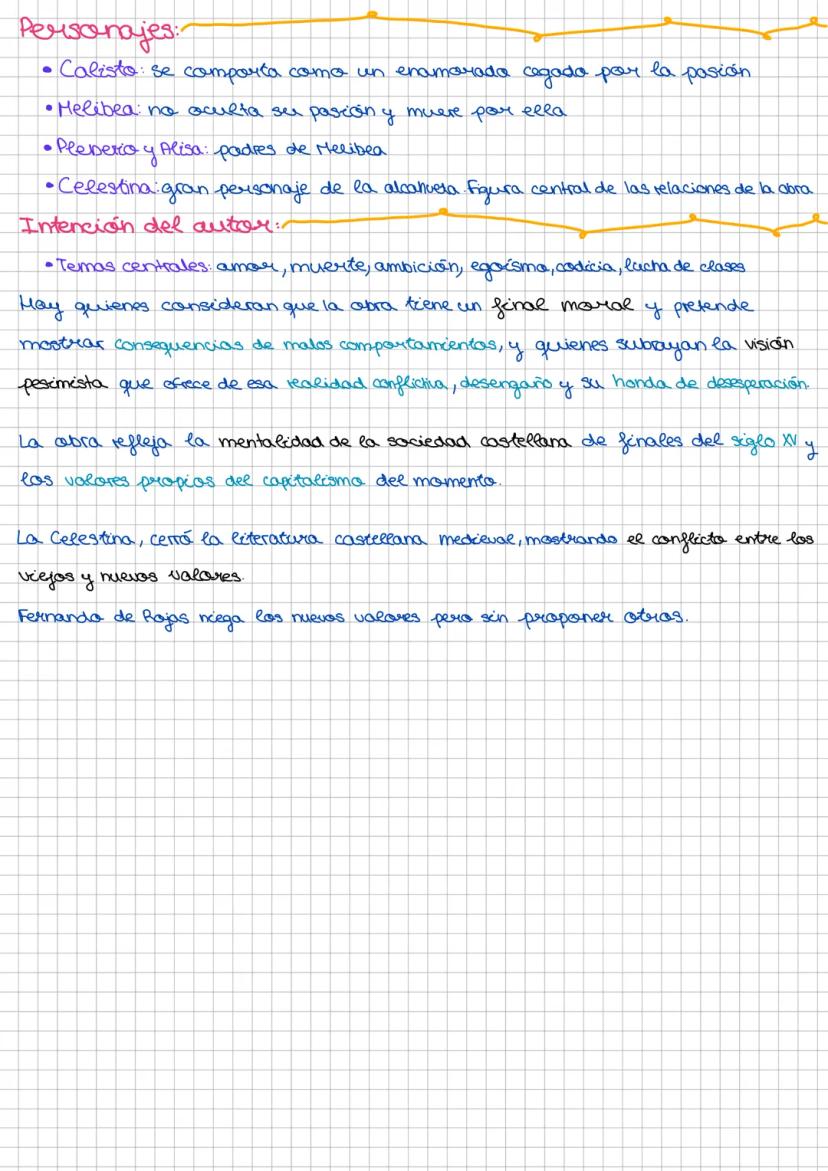 Personajes:
• Calisto: se comporta como un enamorado cegado por la pasión
• Melibea: no oculta su pasión y muere por ella
• Pleberio y Alisa: padres de Melibea
• Celestina: gran personaje de la alcahueta. Figura central de las relaciones de la obra
Intención del autor:
• Temas centrales: amor, muerte, ambición, egoísmo, codicia, lucha de clases
Hay quienes consideran que la obra tiene un final moral y pretende
mostrar consecuencias de malos comportamientos, y quienes subrayan la visión
pesimista que ofrece de esa realidad conflictiva, desengaño y su honda de desesperación.
La obra refleja la mentalidad de la sociedad castellana de finales del siglo XV y
los valores propios del capitalismo del momento.
La Celestina, cerró la literatura castellana medieval, mostrando el conflicto entre los
viejos y nuevos valores.
Fernando de Rojas niega los nuevos valores pero sin proponer otros.